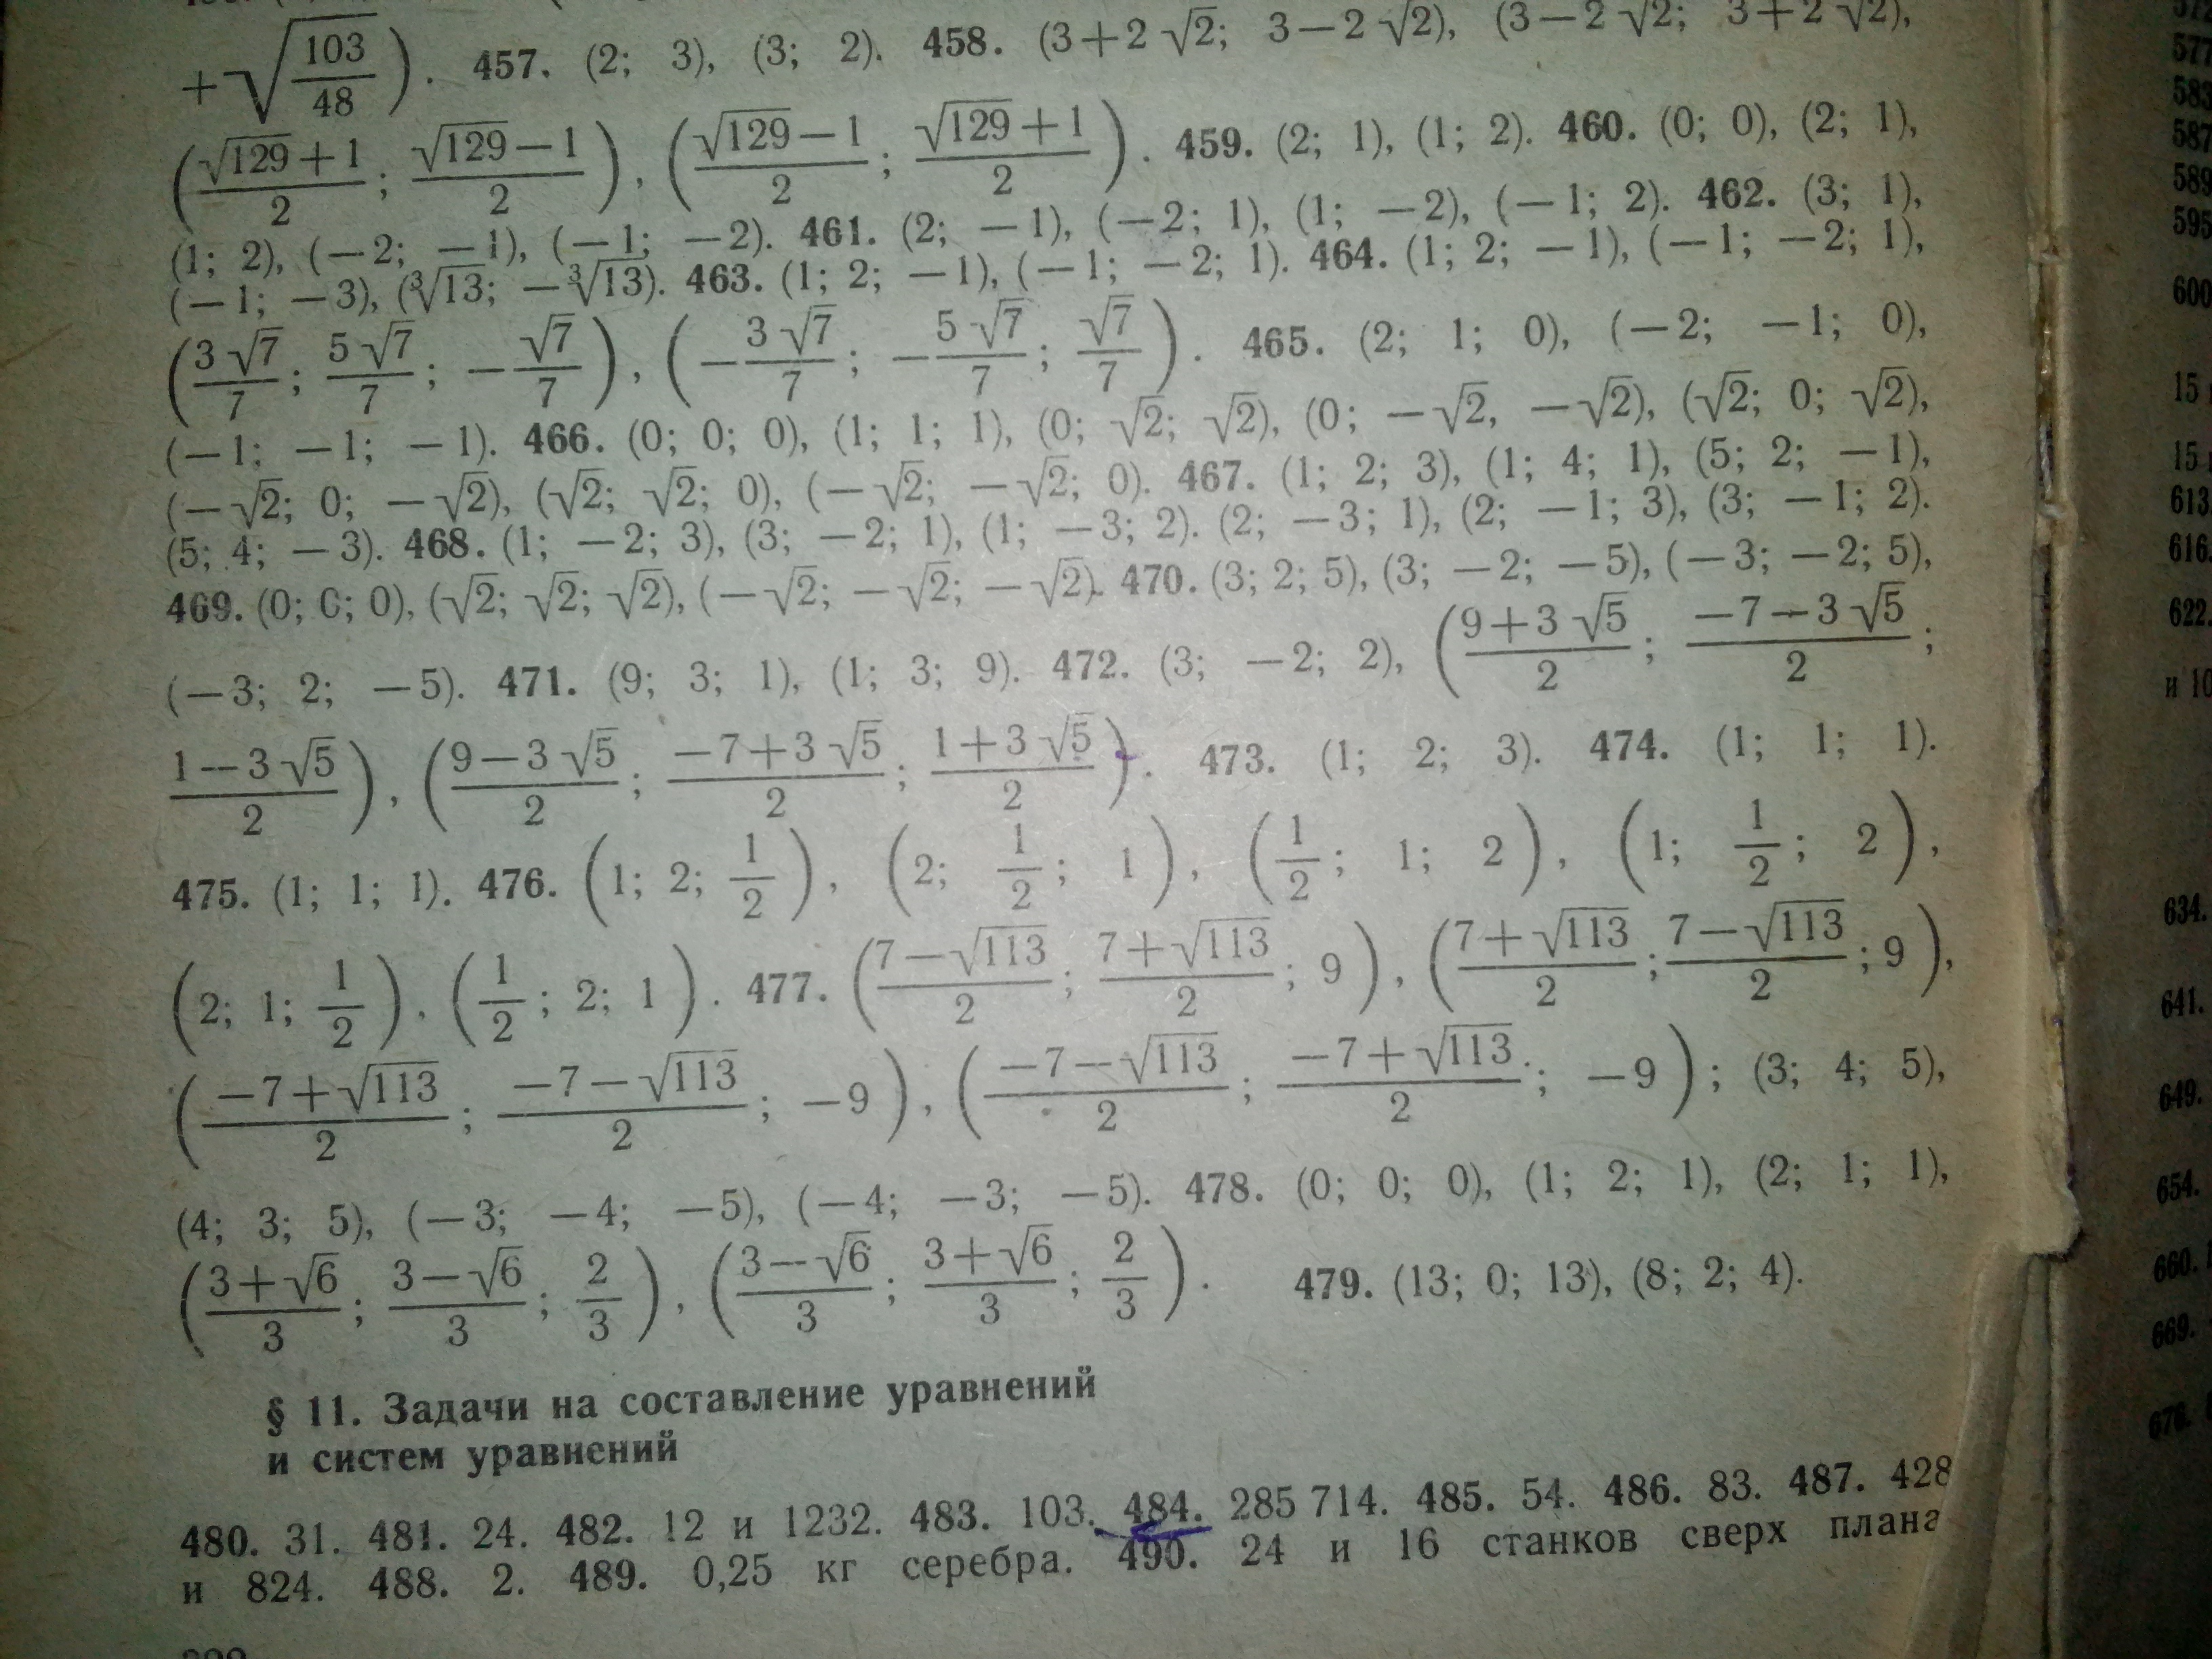 +√(103/48)). 457. (2; 3), (3; 2). 458. (3+2√2; 3−2√2), (3−2√2; 3+2√2),
((√129+1)/2; (√129−1)/2), ((√129−1)/2; (√129+1)/2). 459. (2; 1), (1; 2). 460. (0; 0), (2; 1),
(1; 2), (−2; −1), (−1; −2). 461. (2; −1), (−2; 1), (1; −2), (−1; 2). 462. (3; 1),
(−1; −3), (∛13; −∛13). 463. (1; 2; −1), (−1; −2; 1). 464. (1; 2; −1), (−1; −2; 1),
(3√7/7; 5√7/7; −√7/7), (−3√7/7; −5√7/7; √7/7). 465. (2; 1; 0), (−2; −1; 0),
(−1; −1; −1). 466. (0; 0; 0), (1; 1; 1), (0; √2; √2), (0; −√2, −√2), (√2; 0; √2),
(−√2; 0; −√2), (√2; √2; 0), (−√2; −√2; 0). 467. (1; 2; 3), (1; 4; 1), (5; 2; −1),
(5; 4; −3). 468. (1; −2; 3), (3; −2; 1), (1; −3; 2). (2; −3; 1), (2; −1; 3), (3; −1; 2).
469. (0; 0; 0), (√2; √2; √2), (−√2; −√2; −√2). 470. (3; 2; 5), (3; −2; −5), (−3; −2; 5),
(−3; 2; −5). 471. (9; 3; 1), (1; 3; 9). 472. (3; −2; 2), ((9+3√5)/2; (−7−3√5)/2;
(1−3√5)/2), ((9−3√5)/2; (−7+3√5)/2; (1+3√5)/2). 473. (1; 2; 3). 474. (1; 1; 1).
475. (1; 1; 1). 476. (1; 2; 1/2), (2; 1/2; 1), (1/2; 1; 2), (1; 1/2; 2),
(2; 1; 1/2), (1/2; 2; 1). 477. ((7−√113)/2; (7+√113)/2; 9), ((7+√113)/2; (7−√113)/2; 9),
((−7+√113)/2; (−7−√113)/2; −9), ((−7−√113)/2; (−7+√113)/2; −9); (3; 4; 5),
(4; 3; 5), (−3; −4; −5), (−4; −3; −5). 478. (0; 0; 0), (1; 2; 1), (2; 1; 1),
((3+√6)/3; (3−√6)/3; 2/3), ((3−√6)/3; (3+√6)/3; 2/3). 479. (13; 0; 13), (8; 2; 4).
§ 11. Задачи на составление уравнений
и систем уравнений
480. 31. 481. 24. 482. 12 и 1232. 483. 103. 484. 285 714. 485. 54. 486. 83. 487. 428
и 824. 488. 2. 489. 0,25 кг серебра. 490. 24 и 16 станков сверх плана
577
583
587
589
595
600
15
15
613.
616.
622.
и 10
634.
641.
649.
654.
660.
669.
676.